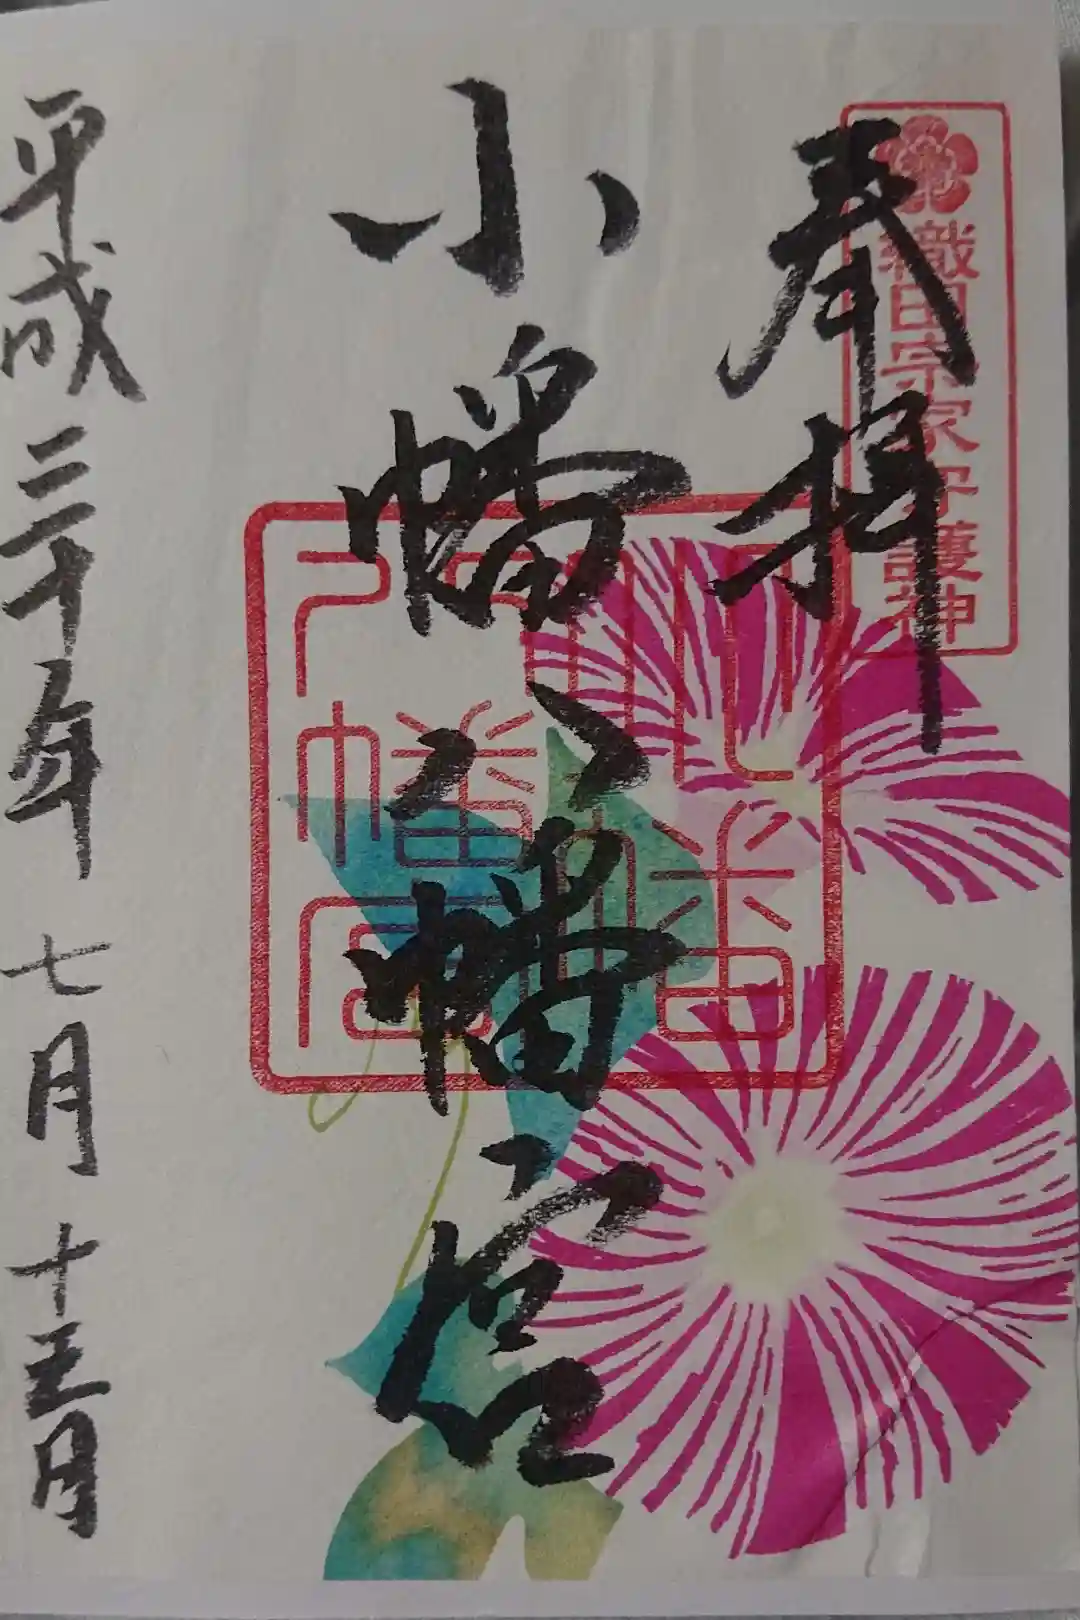 織田宗家守護神
奉拝
小幡八幡宮
小幡
八幡宮
平成三十年七月十五日